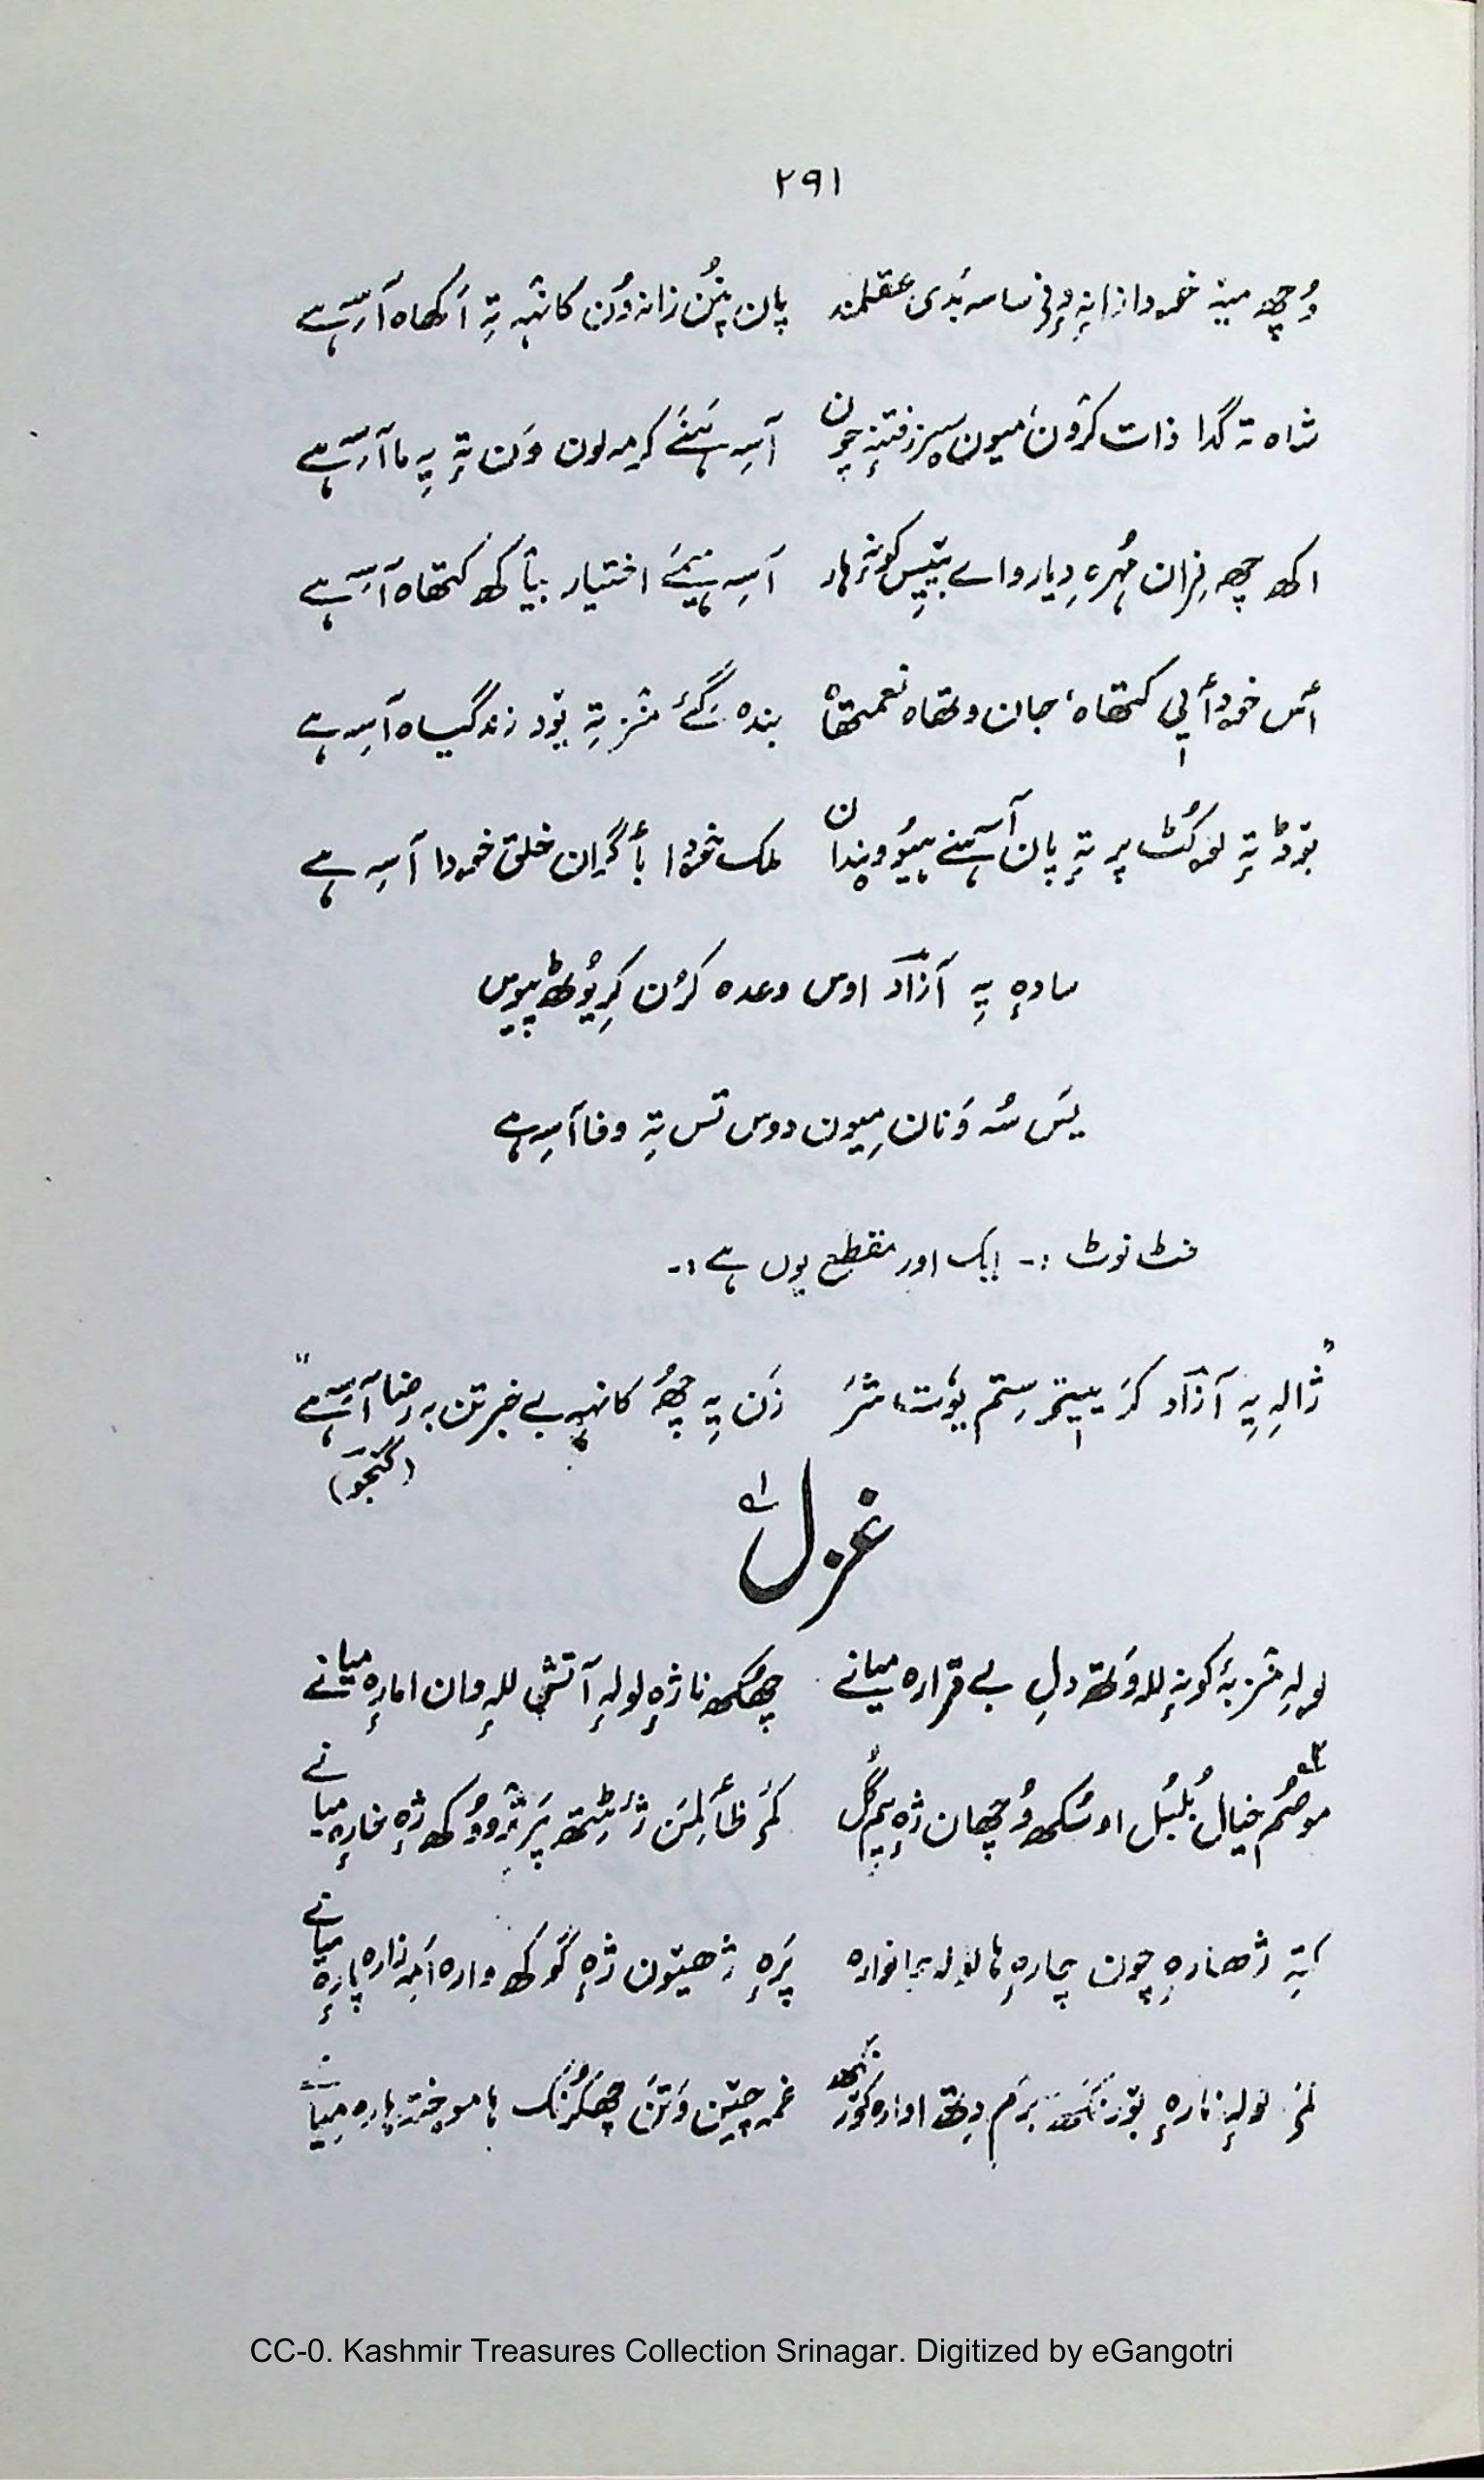 ۲۹۱
وُچھ میہٕ خودا زانہِ وٕنۍ ساسہٕ بٔدی عقلمند پان پنُن زانہٕ وُن کانٛہہ تہِ اَکھاہ آسہِ ہے
شاہ تہ گدا ذات کرٛون میون سپز فتنہٕ آسہِ ہنے کرمہٕ لون وَن تہِ یہِ ما آسہِ ہے
اکھ چھ نِوان مُہرہ دِیار واے بییس کونہٕ ہار آسہِ ہیمے اختیار بیٛاکھ کتھاہ آسہِ ہے
أس خودأیی کتھاہ، جان وتھاہ نعمتھاہ بندہ گیٚے منٛز تہِ بوٚد زندگیاہ آسہِ ہے
بوٚڈ تہِ لوکُٹ پر تہِ پان آسہنے ہیوٗ وندان ملک خودا بأگران خلق خودا آسہِ ہے
سادہٕ یہِ آزاد اوس وعدہ کرُن کرِیوٗٹھ پیوس
یَس سُہ وَنان مِیون دوس تس تہِ وفا آسہِ ہے
فٹ نوٹ :۔ ایک اور مقطع یوں ہے :۔
"ژالہِ یہِ آزاد کَر ییٚتۍ سِتم یوٗت شَر زَن یہِ چھُ کانٛہہ بے خبر تن بہ رضا آسہِ ہے"
(گنجو)
غزل
لولہٕ منٛز بہٕ کونہٕ للہٕ وَتھ دلِ بے قرارہ میانے چھُکھ نا ژٕہ لولہٕ آتش للہٕ وان امارٕہ میانے
موصُم خیال بُلبُل اوسُکھ وُچھان ژٕہ یِم گُل کَمۍ ظألِمَن ژٔٹِتھ پَر ژوٚوُکھ ژٕہ خارٕہ میانے
کتہِ ژھارٕہ چون چارٕہ ہا لولہٕ جانوارہ پَرٕہ ژھیٚون ژٕہ گوکھ وارہ اَمہِ زارہ پارٕہ میانے
لولہٕ نارٕہ بوٚرنکھ برَم دِتھ اوارہ کوٚرنکھ غمہٕ چیٚن وَتَن چھکُرنکھ ہا موختہٕ ہارہ میانے
CC-0. Kashmir Treasures Collection Srinagar. Digitized by eGangotri